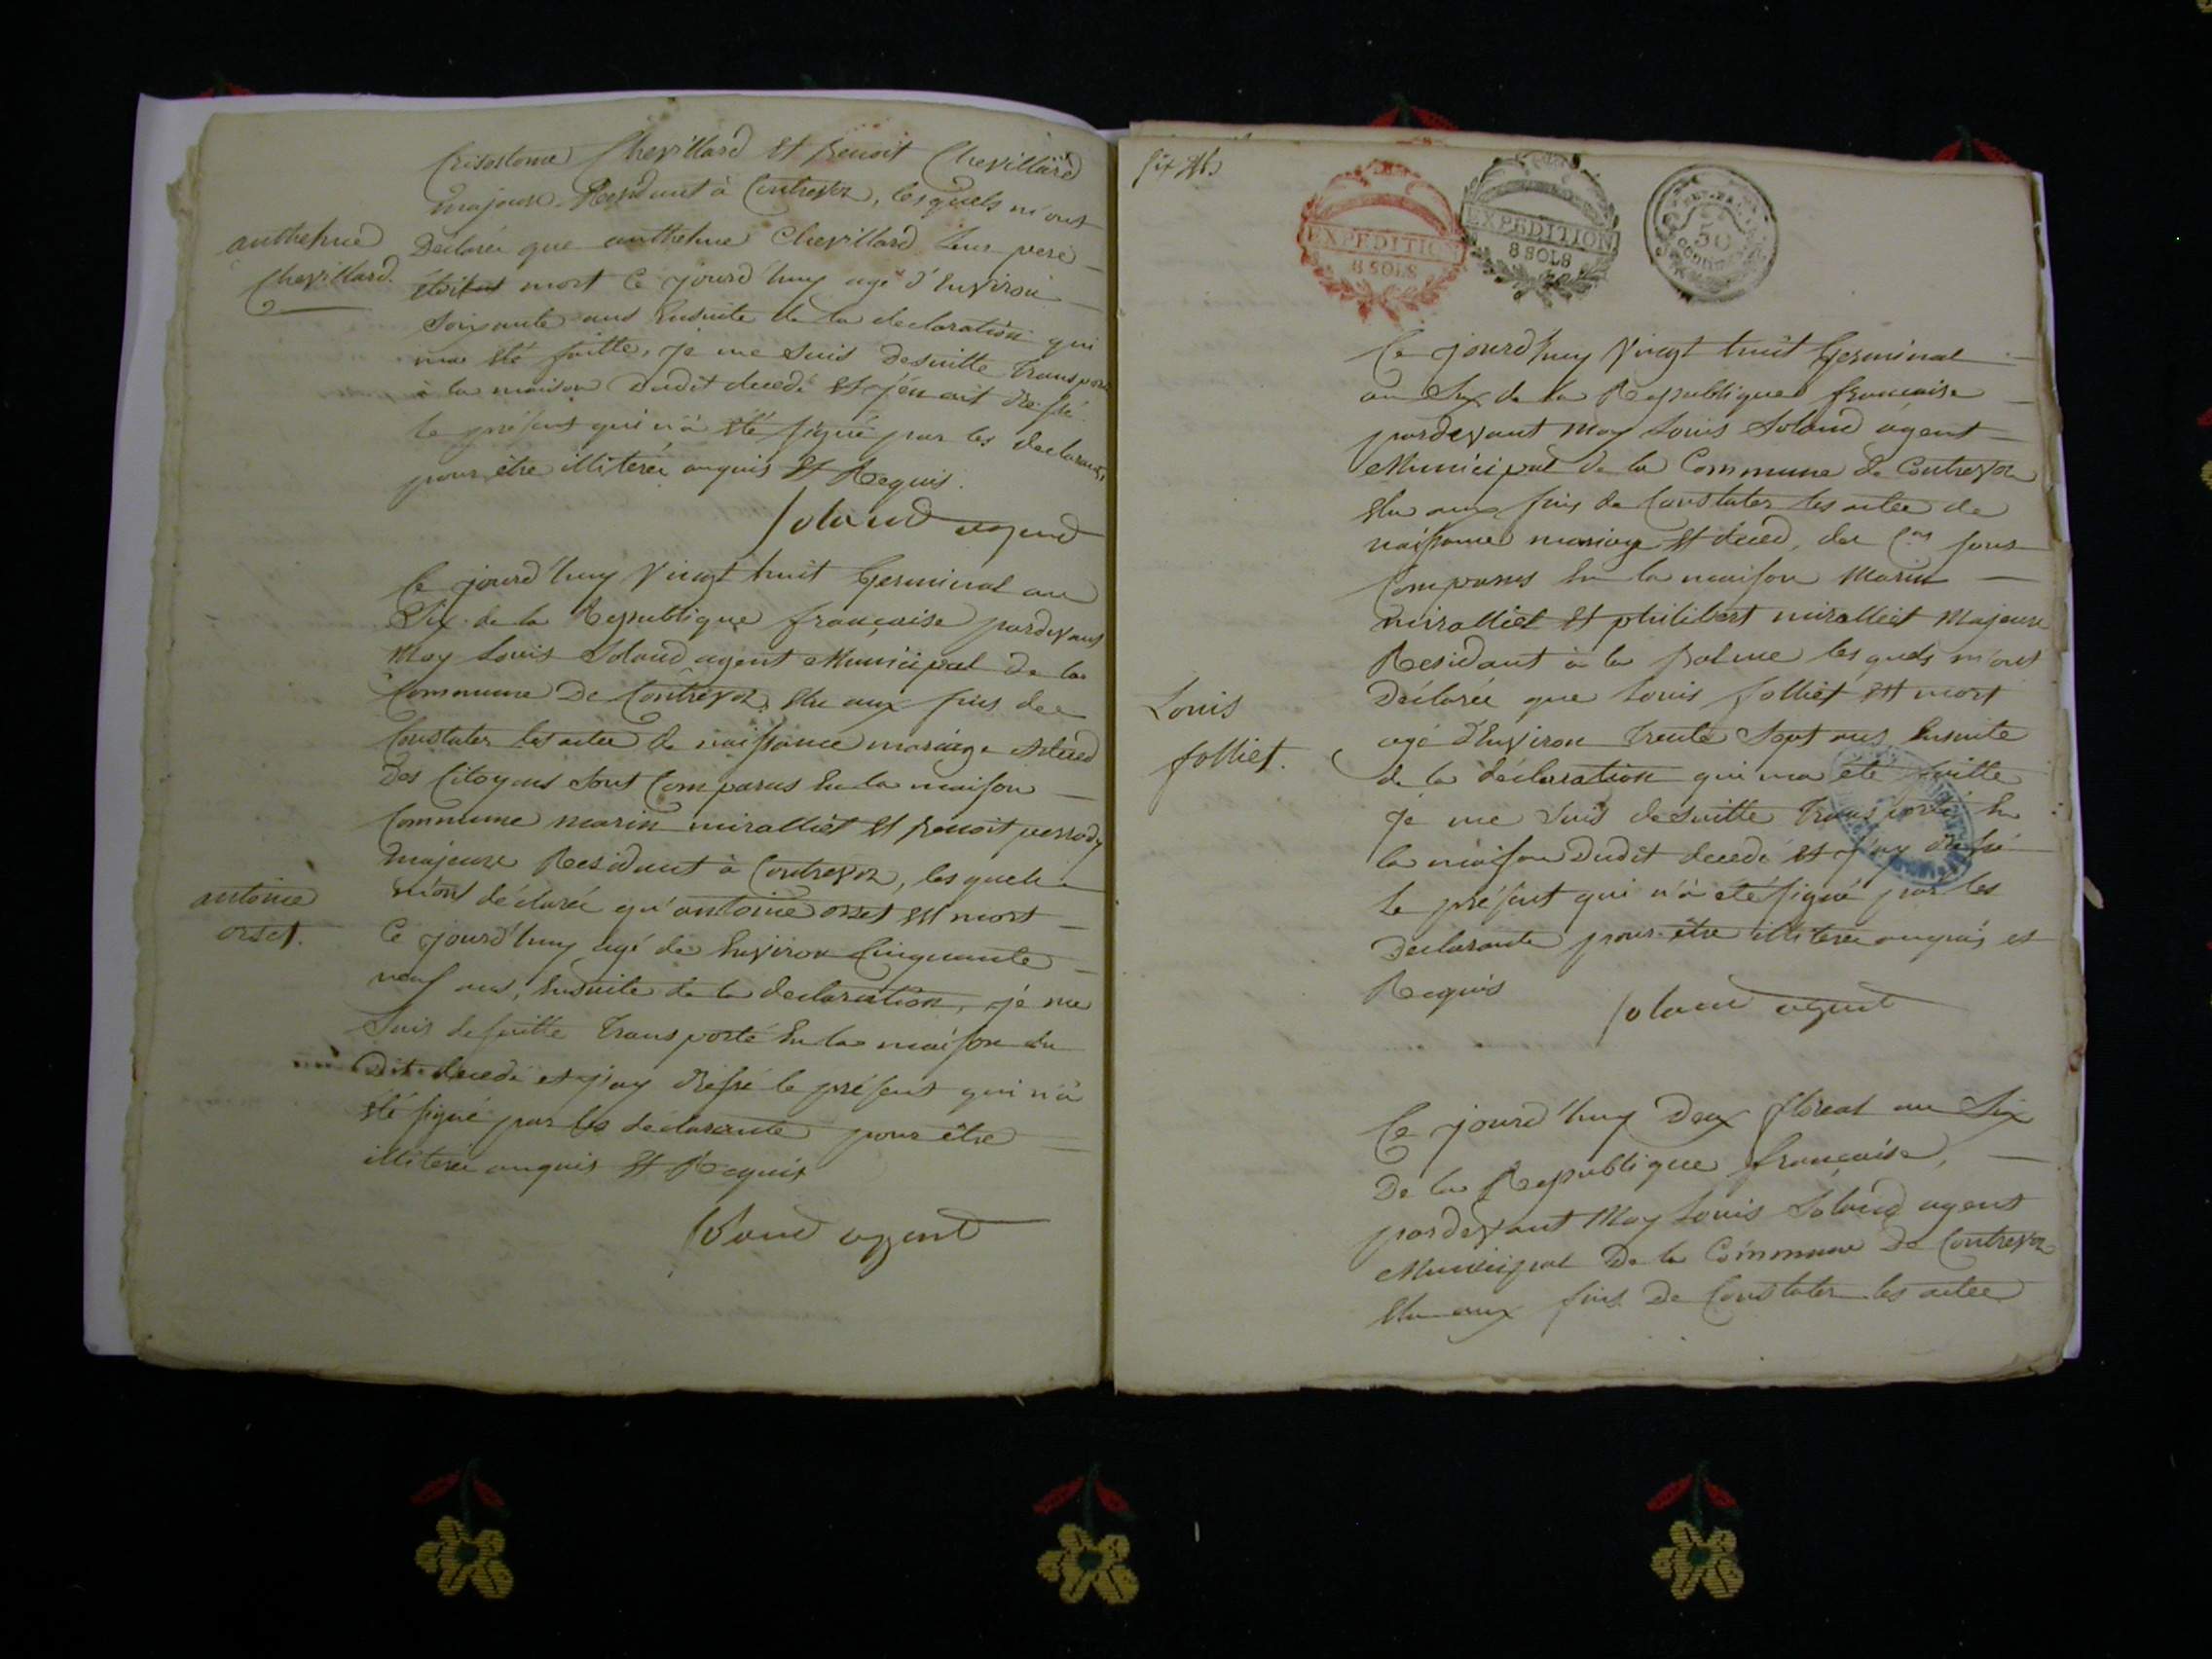 Crisostome Chevillard et benoit Chevillard
majeurs Residant à Contrevoz, lesquels m'ont
anthelme
Chevillard.
Déclaréé que anthelme Chevillard leur pere
étoit mort Ce jourd'huy agé d'Environ
Soixante ans Ensuite de la declaration qui
ma été faitte, je me suis desuitte Transporté
à la maison dudit decedé et j'en ait dressé
le présent qui n'a été signé par les declarants,
pour être illiteréé enquis et Requis.
Soland agent
Ce jourd'huy Vingt huit Germinal an
Six de la Republique française pardevant
Moy Louis Soland agent Municipal de la
Commune De Contrevoz, Elu aux fins de
Constater les actes de naissance mariage et deced
Des Citoyens sont Comparus En la maison
Commune marin miralliet et benoit
majeurs Residant à Contrevoz, lesquels
m'ont déclaréé qu'antoine orset est mort
antoine
orset.
Ce jourd'huy agé de Environ Cinquante
neuf ans, Ensuite de la declaration, je me
suis desuitte Transporté En la maison du
Dit decedé et j'ay dressé le présent qui n'a
été signé par les déclarants pour être
illiteréé enquis et Requis
Soland agent
EXPEDITION
8 SOLS
EXPEDITION
8 SOLS
50
Ce jourd'huy Vingt huit Germinal
an Six de la Republique française
pardevant Moy Louis Soland agent
Municipal de la Commune de Contrevoz
Elu aux fins de Constater les actes de
naissance mariage et deced, des Cens sont
Comparus En la maison Marin
miralliet et philibert miralliet Majeurs
Residant à la balme lesquels m'ont
Louis
folliet.
Déclaréé que Louis folliet est mort
agé d'Environ Trente Sept ans Ensuite
de la déclaration qui ma été faitte
je me suis desuitte Transporté En
la maison Dudit decedé et j'ay dressé
le présent qui n'a été signé par les
Declarants pour être illiteréé enquis et
Requis
Soland agent
Ce jourd'huy Deux floreal an Six
De la Republique française,
pardevant Moy Louis Soland agent
Municipal De la Commune De Contrevoz
Elu aux fins De Constater les actes